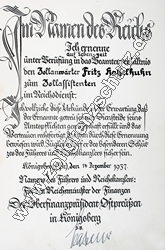 Im Namen des Reichs
Ich ernenne
unter Berufung in das Beamtenverhältnis
den Zollanwärter Fritz
zum Zollassistenten
im Reichsdienst.
Ich vollziehe diese Urkunde in der Erwartung, daß der
Ernannte getreu seinem Diensteide seine
Amtspflichten gewissenhaft erfüllt und das
Vertrauen rechtfertigt, das ihm durch diese Ernennung
bewiesen wird. Zugleich darf er des besonderen Schutzes
des Führers und Reichskanzlers sicher sein.
Königsberg (Pr), den Dezember 1937.
Namens des Führers und Reichskanzlers:
Für den Reichsminister der Finanzen
Der Oberfinanzpräsident Ostpreußen
in Königsberg